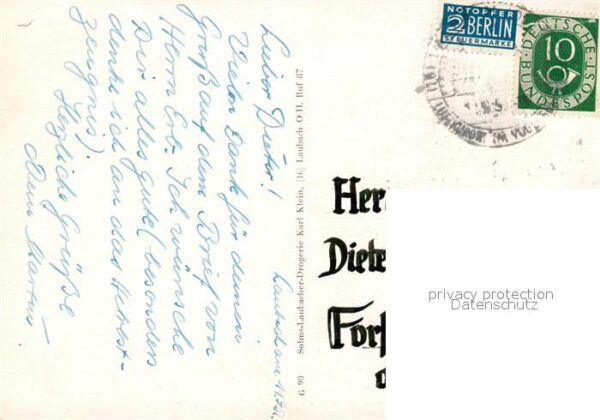 Laubach am
Lieber Dieter!
Vielen Dank für deinen
Gruß auf dem Brief von
Herrn Erb. Ich wünsche
Dir alles gute (besonders
denk ich an das Herbst-
zeugnis).
Herzliche Grüße
dein
G 90 Solms-Laubacher-Drogerie Karl Klein, (16) Laubach O H. Ruf 87
NOTOPFER
2 BERLIN
STEUERMARKE
DEUTSCHE
BUNDESPOST
10
LUFTKURORT IM
Her
Diete
privacy protection
Datenschutz